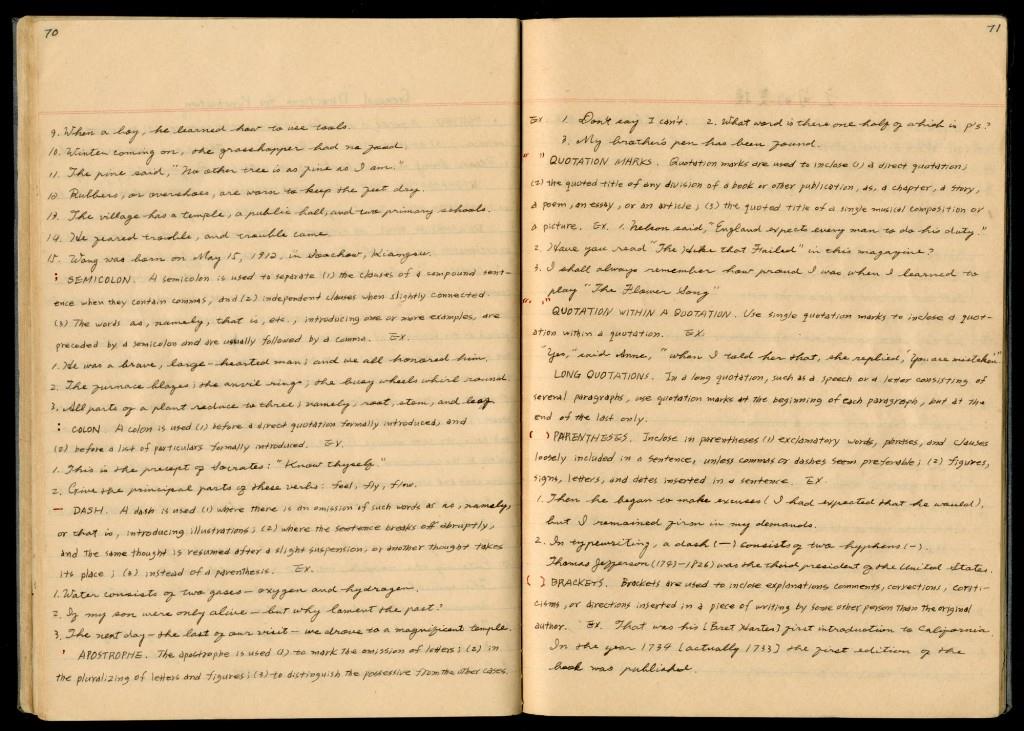 70
9. When a boy, he learned how to use tools.
10. Winter coming on, the grasshopper had no food.
11. The pine said, "No other tree is as fine as I am."
12. Rubbers, or overshoes, are worn to keep the feet dry.
13. The village has a temple, a public hall, and two primary schools.
14. He feared trouble, and trouble came.
15. Wang was born on May 15, 1912, in Soochow, Kiangsu.
; SEMICOLON. A semicolon is used to separate (1) the clauses of a compound sent-
ence when they contain commas, and (2) independent clauses when slightly connected.
(3) The words as, namely, that is, etc., introducing one or more examples, are
preceded by a semicolon and are usually followed by a comma. Ex.
1. He was a brave, large-hearted man; and we all honored him.
2. The furnace blazes; the anvil rings; the busy wheels whirl round.
3. All parts of a plant reduce to three; namely, root, stem, and leaf
: COLON. A colon is used (1) before a direct quotation formally introduced, and
(2) before a list of particulars formally introduced. Ex.
1. This is the precept of Socrates: "Know thyself."
2. Give the principal parts of these verbs: feel, fly, flow.
— DASH. A dash is used (1) where there is an omission of such words as as, namely,
or that is, introducing illustrations; (2) where the sentence breaks off abruptly,
and the same thought is resumed after a slight suspension, or another thought takes
its place; (3) instead of a parenthesis. Ex.
1. Water consists of two gases — oxygen and hydrogen.
2. If my son were only alive — but why lament the past?
3. The next day — the last of our visit — we drove to a magnificent temple.
' APOSTROPHE. The apostrophe is used (1) to mark the omission of letters; (2) in
the pluralizing of letters and figures; (3) to distinguish the possessive from the other cases.
71
Ex. 1. Don't say I can't. 2. What word is there one half of which is p's?
3. My brother's pen has been found.
" " QUOTATION MARKS. Quotation marks are used to inclose (1) a direct quotation;
(2) the quoted title of any division of a book or other publication, as, a chapter, a story,
a poem, an essay, or an article; (3) the quoted title of a single musical composition or
a picture. Ex. 1. Nelson said, "England expects every man to do his duty."
2. Have you read "The Hike that Failed" in this magazine?
3. I shall always remember how proud I was when I learned to
play "The Flower Song"
" ' ' " QUOTATION WITHIN A QUOTATION. Use single quotation marks to inclose a quot-
ation within a quotation. Ex.
"Yes," said Anne, "when I told her that, she replied, 'You are mistaken'."
LONG QUOTATIONS. In a long quotation, such as a speech or a letter consisting of
several paragraphs, use quotation marks at the beginning of each paragraph, but at the
end of the last only.
( ) PARENTHESES. Inclose in parentheses (1) exclamatory words, phrases, and clauses
loosely included in a sentence, unless commas or dashes seem preferable; (2) figures,
signs, letters, and dates inserted in a sentence. Ex.
1. Then he began to make excuses (I had expected that he would),
but I remained firm in my demands.
2. In typewriting, a dash (—) consists of two hyphens (-).
Thomas Jefferson (1743-1826) was the third president of the United States.
[ ] BRACKETS. Brackets are used to inclose explanations, comments, corrections, criti-
cisms, or directions inserted in a piece of writing by some other person than the original
author. Ex. That was his [Bret Harte's] first introduction to California.
In the year 1734 [actually 1733] the first edition of the
book was published.